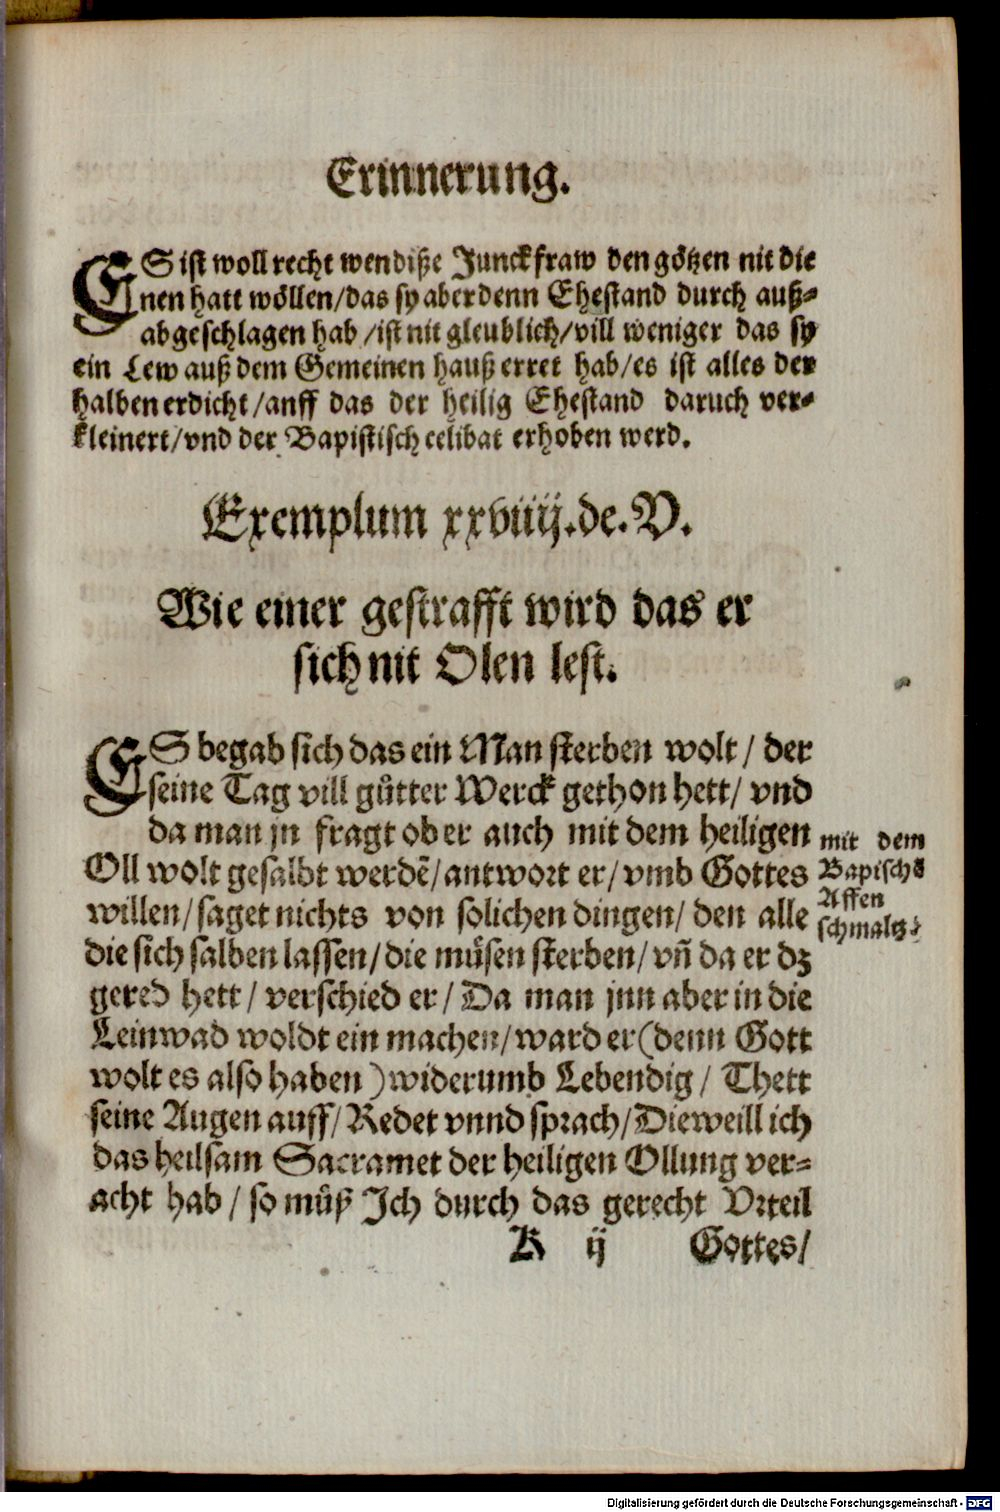 Erinnerung.
ES ist woll recht wen diße Junckfraw den götzen nit die
nen hatt wöllen/das sy aber denn Ehestand durch auß⸗
abgeschlagen hab/ist nit gleublich/vill weniger das sy
ein Lew auß dem Gemeinen hauß erret hab/es ist alles der
halben erdicht/anff das der heilig Ehestand daruch ver⸗
kleinert/vnd der Bapistisch celibat erhoben werd.
Exemplum xxviiij.de.V.
Wie einer gestrafft wird das er
sich nit Olen lest.
ES begab sich das ein Man sterben wolt/ der
seine Tag vill gůtter Werck gethon hett/ vnd
da man jn fragt ob er auch mit dem heiligen
Oll wolt gesalbt werdē/antwort er/vmb Gottes
willen/saget nichts von solichen dingen/den alle
die sich salben lassen/die můsen sterben/vn̄ da er dz
gered hett/ verschied er/Da man jnn aber in die
Leinwad woldt ein machen/ward er(denn Gott
wolt es also haben)widerumb Lebendig/ Thett
seine Augen auff/Redet vnnd sprach/Dieweill ich
das heilsam Sacramet der heiligen Ollung ver⸗
acht hab/so můß Ich durch das gerecht Vrteil
K ij Gottes/
mit dem
Bapischē
Affen
schmaltz.
Digitalisierung gefördert durch die Deutsche Forschungsgemeinschaft - DFG